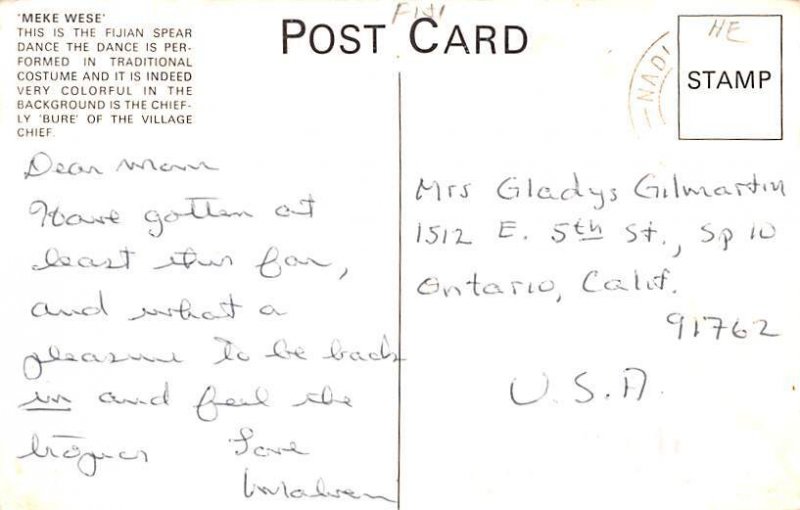 'MEKE WESE'
THIS IS THE FIJIAN SPEAR
DANCE THE DANCE IS PER-
FORMED IN TRADITIONAL
COSTUME AND IT IS INDEED
VERY COLORFUL IN THE
BACKGROUND IS THE CHIEF-
LY 'BURE' OF THE VILLAGE
CHIEF.
FIJI
POST CARD
NADI
HE
STAMP
Dear Mom
Have gotten at
least this far,
and what a
pleasure to be back
in and feel the
Love
Mrs Gladys Gilmartin
1512 E. 5th St., Sp 10
Ontario, Calif.
91762
U.S.A.